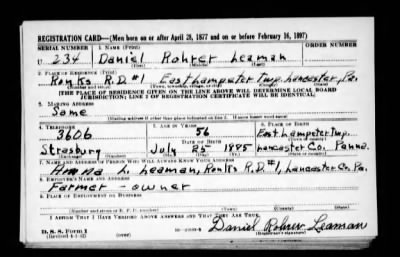 REGISTRATION CARD—(Men born on or after April 28, 1877 and on or before February 16, 1897)
SERIAL NUMBER 1. NAME (Print) ORDER NUMBER
U 234 Daniel Rohrer Leaman
(First) (Middle) (Last)
2. PLACE OF RESIDENCE (Print)
Ronks R.D.#1 East Lampeter Twp. Lancaster, Pa.
(Number and street) (Town, township, village, or city) (County) (State)
[THE PLACE OF RESIDENCE GIVEN ON THE LINE ABOVE WILL DETERMINE LOCAL BOARD
JURISDICTION; LINE 2 OF REGISTRATION CERTIFICATE WILL BE IDENTICAL]
3. MAILING ADDRESS
Same
[Mailing address if other than place indicated on line 2. If same insert word same]
4. TELEPHONE 5. AGE IN YEARS 6. PLACE OF BIRTH
3606 56 East Lampeter Twp.
DATE OF BIRTH (Town or county)
Strasburg July 25 1885 Lancaster Co. Penna.
(Exchange) (Number) (Mo.) (Day) (Yr.) (State or country)
7. NAME AND ADDRESS OF PERSON WHO WILL ALWAYS KNOW YOUR ADDRESS
Anna L. Leaman, Ronks R.D.#1, Lancaster Co. Pa.
8. EMPLOYER'S NAME AND ADDRESS
Farmer - owner
9. PLACE OF EMPLOYMENT OR BUSINESS
(Number and street or R. F. D. number) (Town) (County) (State)
I AFFIRM THAT I HAVE VERIFIED ABOVE ANSWERS AND THAT THEY ARE TRUE.
D. S. S. Form 1
(Revised 4-1-42) (over) Daniel Rohrer Leaman
(Registrant's signature)